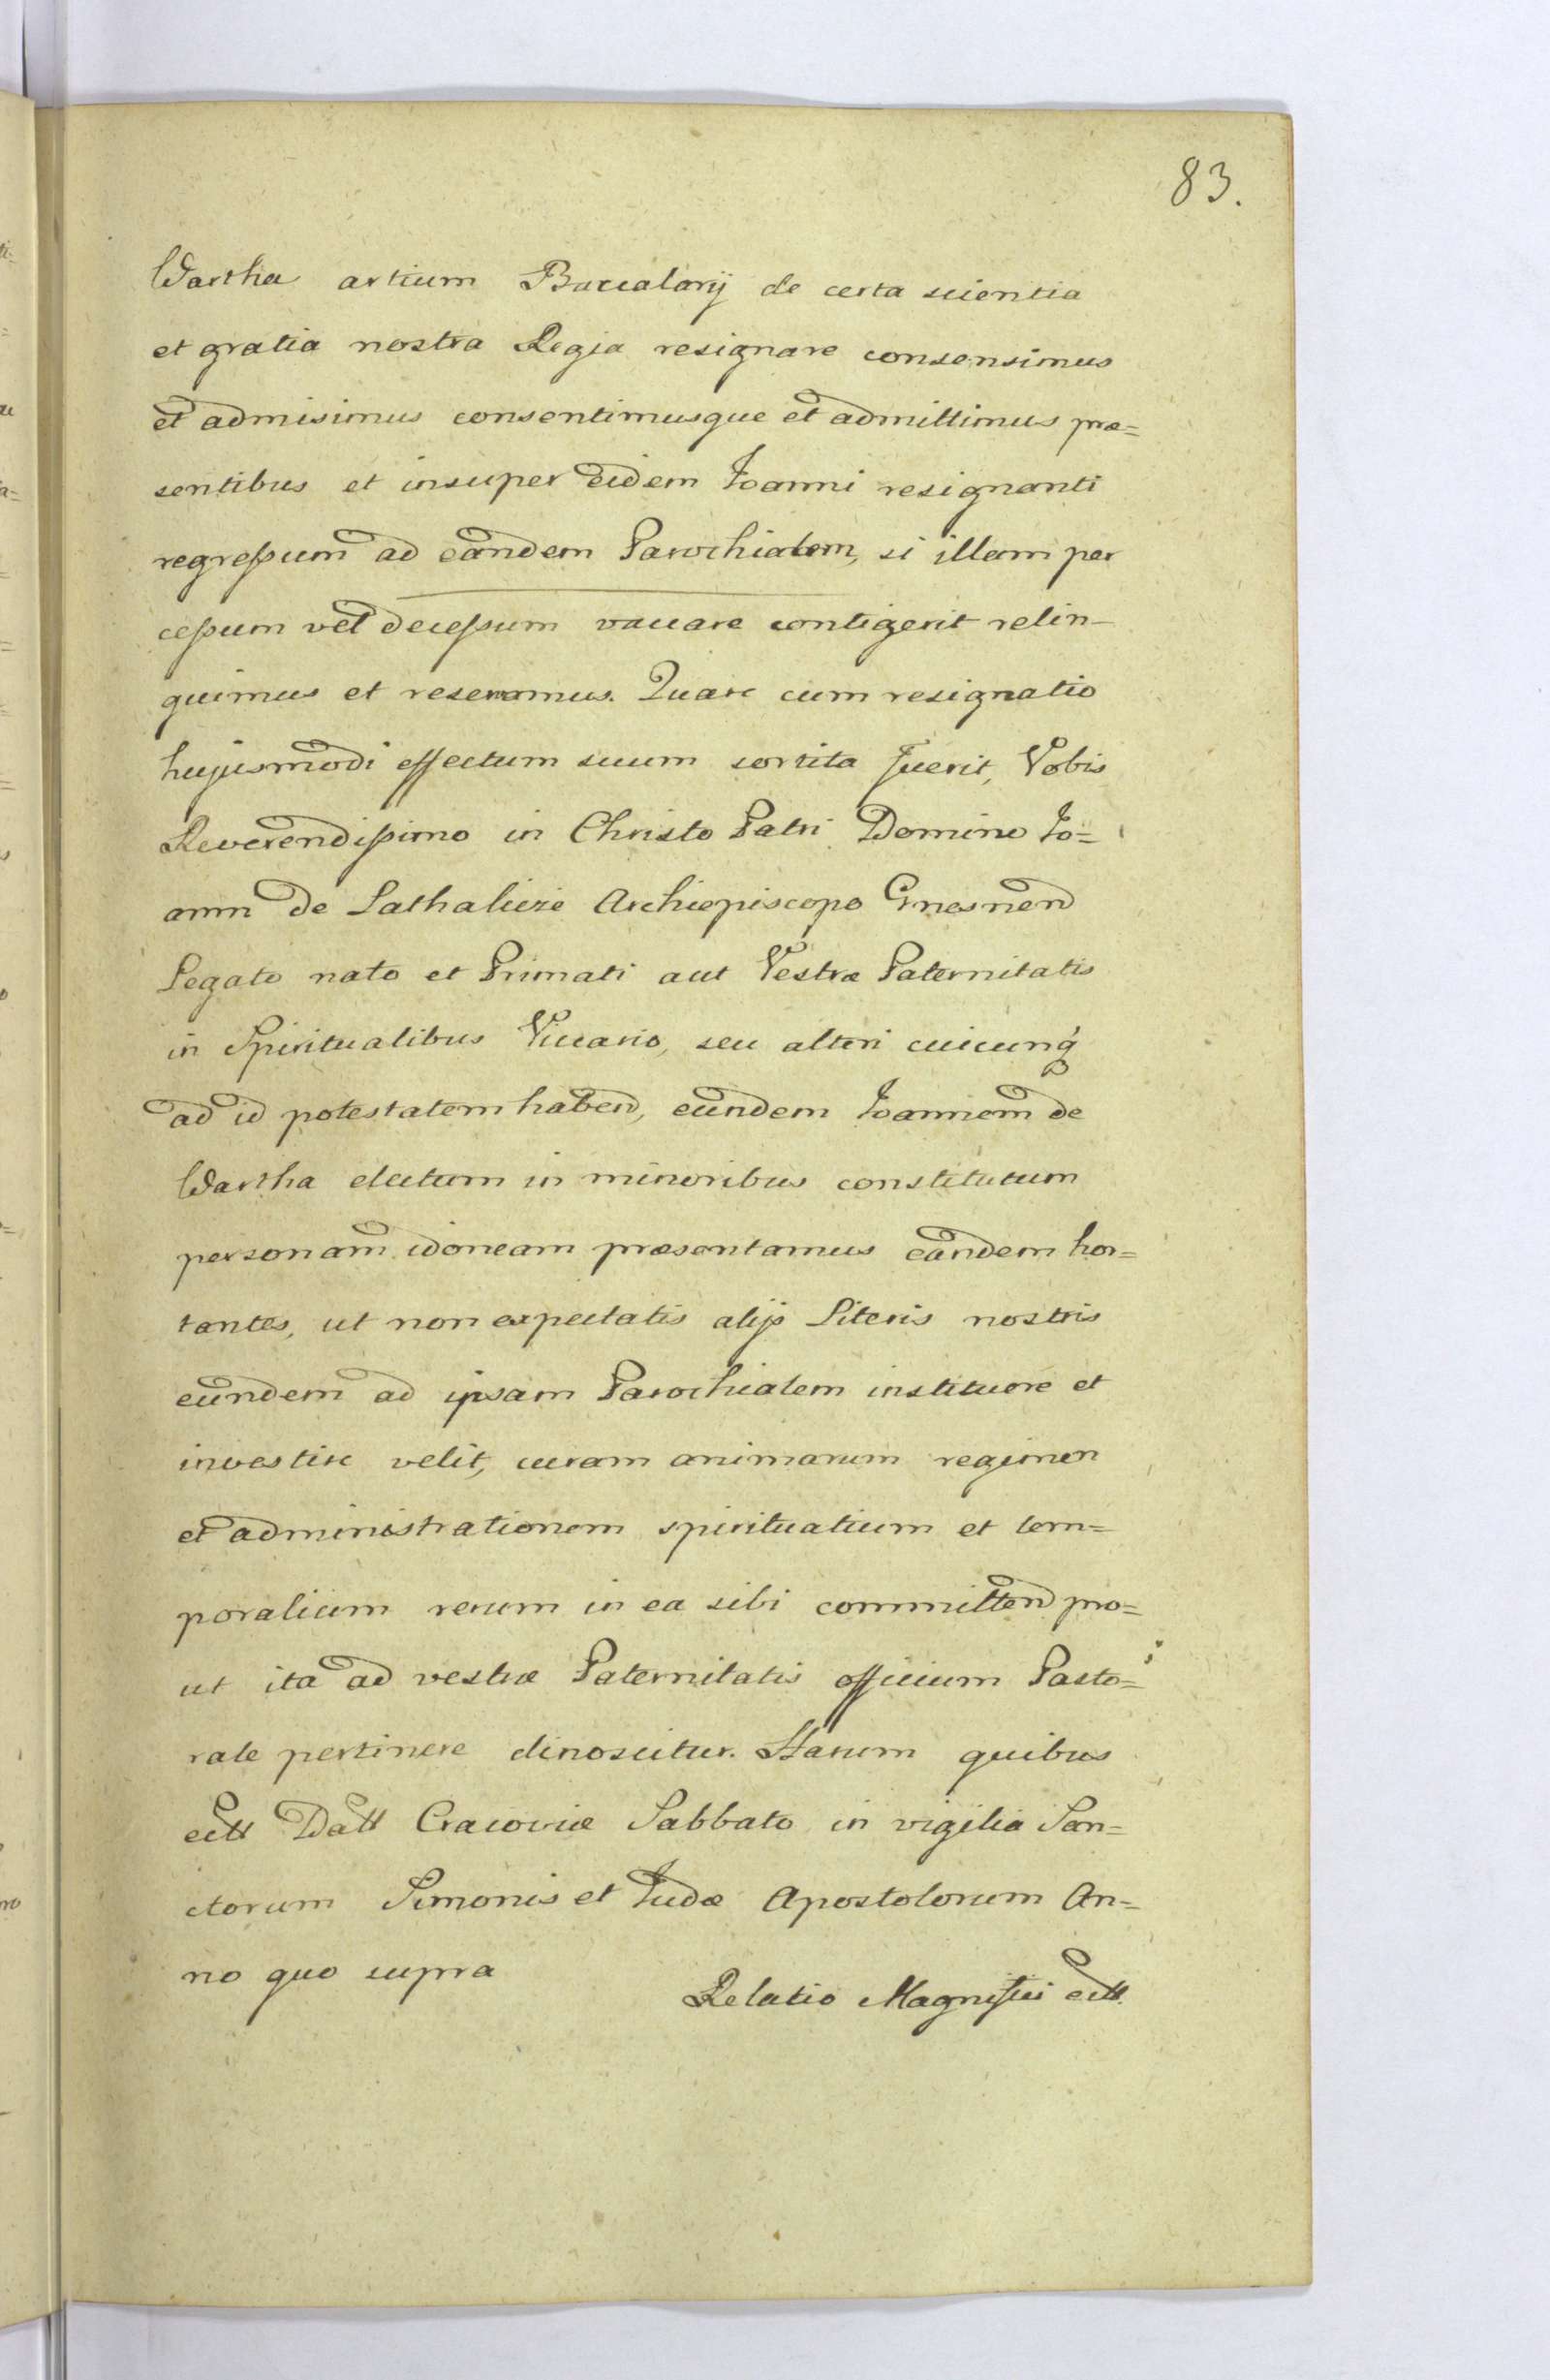 83.
Wartha artium Baccalarij de certa scientia
et gratia nostra Regia resignare consensimus
et admisimus consentimusque et admittimus præ=
sentibus et insuper eidem Joanni resignanti
regreßum ad eandem Parochialem, si illam per
ceßum vel deceßum vaccare contigerit relin-
quimus et reservamus. Quare cum resignatio
hujusmodi effectum suum sortita fuerit, Vobis
Reverendißimo in Christo Patri Domino Jo=
anni de Lathalicze Archiepiscopo Gnesnen
Legato nato et Primati aut Vestræ Paternitatis
in Spiritualibus Viccario, seu alteri cuicunq
ad id potestatem haben, eundem Joannem de
Wartha electum in minoribus constitutum
personam idoneam præsentamus eandem hor=
tantes, ut non expectatis alijs Literis nostris
eundem ad ipsam Parochialem instituere et
investire velit, curam animarum regimen
et administrationem spiritualium et tem=
poralium rerum in ea sibi committen pro=
ut ita ad vestræ Paternitatis officium Pasto=
rale pertinere dinoscitur. Harum quibus
ectt Datt Cracoviæ Sabbato in vigilia San=
ctorum Simonis et Judæ Apostolorum An=
no quo supra
Relatio Magnifici ectt.